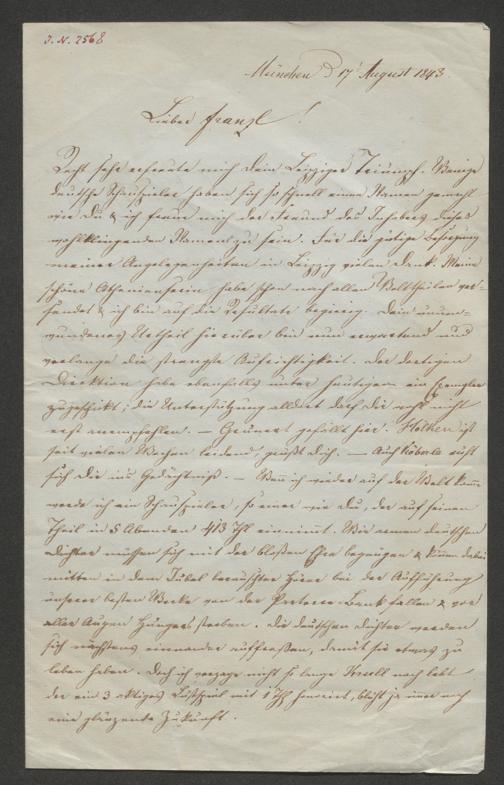 J. N. 7568
München d 17' August 1843.
Lieber Franzl!
Recht sehr erfreute mich dein Leipziger Triumpf. Wenige
deutsche Schauspieler haben sich so schnell einen Namen gemacht
wie du & ich freue mich der Freund des Inhabers dieses
wohlklingenden Namens zu sein. Für die gütige Besorgung
meiner Angelegenheiten in Leipzig vielen Dank. Meine
schöne Athenienserin habe schon nach allen Welttheilen ver-
sendet & ich bin auf die Resultate begierig. Dein unum-
wundenes Urtheil hierüber bin nun erwartend und
verlange die strengste Aufrichtigkeit. Der dortigen
Direktion habe ebenfalls unter heutigem ein Exemplar
zugeschickt; die Unterstützung alldort darf dir wohl nicht
erst anempfehlen. — Grunert gefällt hier. Holken ist
seit vielen Wochen leidend, grüßt dich. — Auch Köberle ruft
sich dir ins Gedächtniß. — Wenn ich wieder auf die Welt komme
werde ich ein Schauspieler, so einer wie du, der auf seinen
Theil in 5 Abenden 413 Thl einnimmt. Wir armen deutschen
Dichter müssen sich mit der bloßen Ehre begnügen & können dabei
mitten in dem Jubel berauschter Hörer bei der Aufführung
unserer besten Werke von der Parterre-Bank fallen & vor
aller Augen Hungers sterben. Die deutschen Dichter werden
sich nächstens einander auffressen, damit sie etwas zu
leben haben. Doch ich verzage nicht so lange noch lebt
der ein 3 aktiges Lustspiel mit 1 Thl honorirt, blüht ja immer noch
eine glänzende Zukunft.